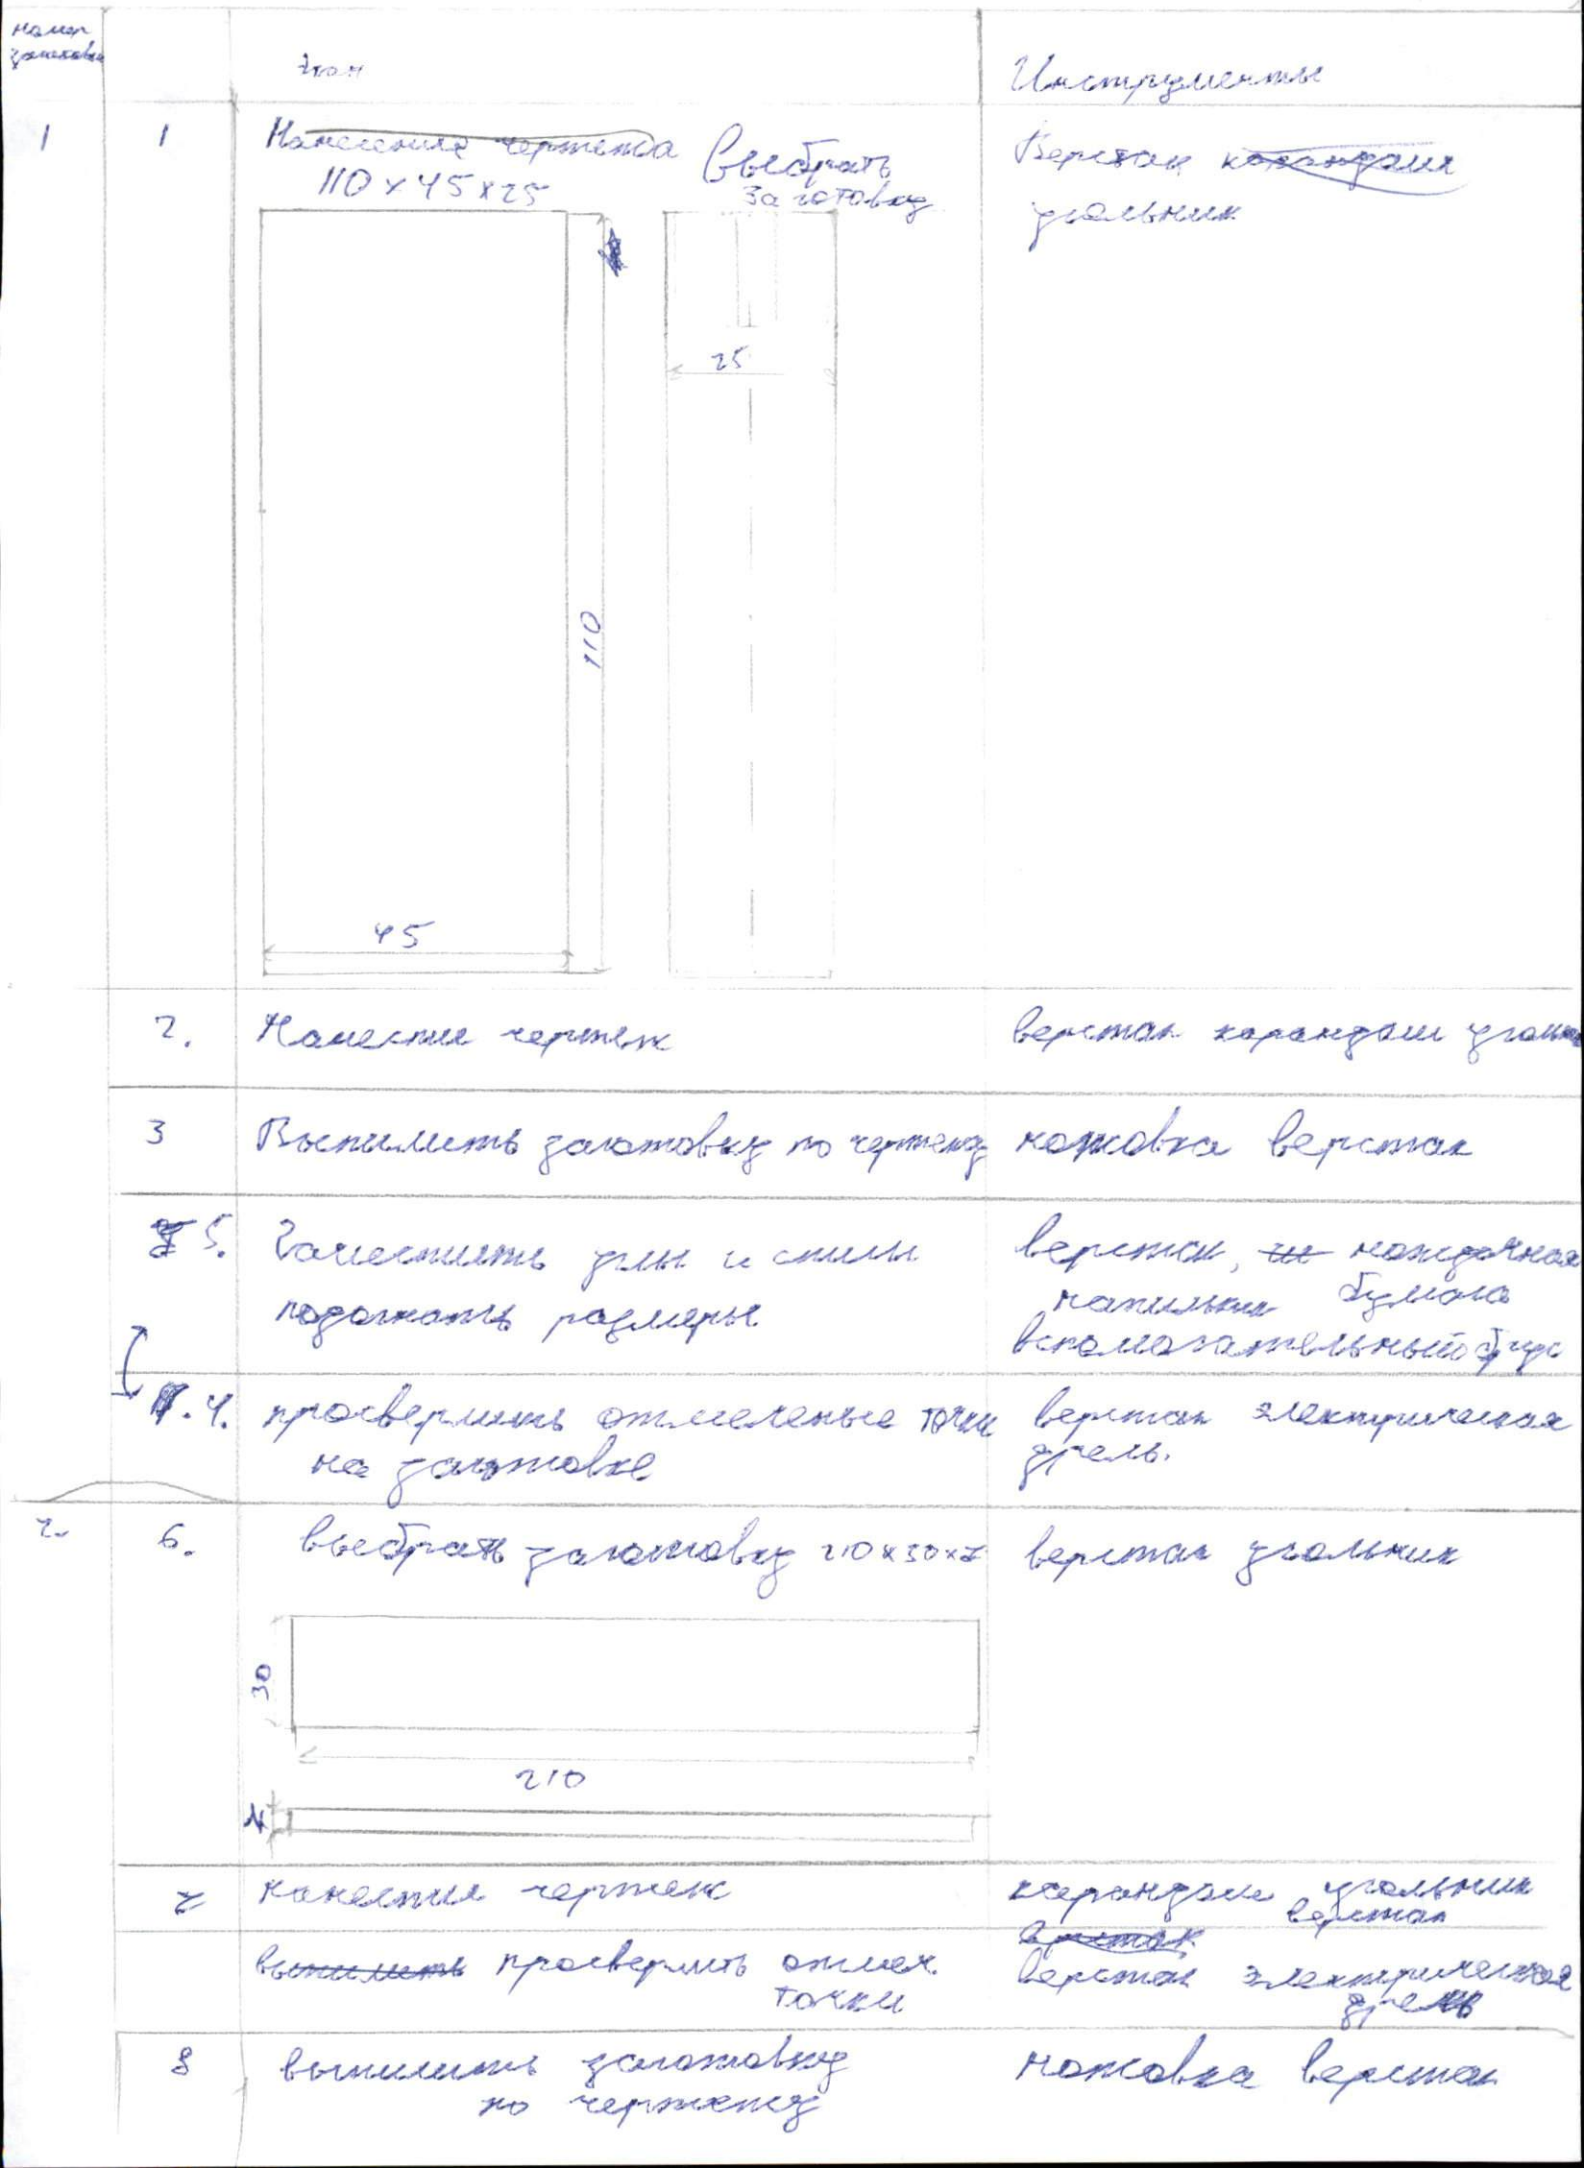 номер
заготовки
этап
Инструменты
1
1
Нанесение чертежа Выбрать
заготовку
110 x 45 x 25
Верстак карандаш
угольник
25
110
45
2.
Нанести чертеж
верстак карандаш
3
Выпилить заготовку по чертежу
ножовка верстак
5.
Зачистить углы и спилы
подогнать размеры
верстак, наждачная
напильник бумага
вспомогательный брус
4.
просверлить отмеченые точки
на заготовке
верстак электрическая
дрель.
2.
6.
выбрать заготовку 210 x 30 x 7
верстак угольник
30
210
7
нанести чертеж
карандаш угольник
верстак
верстак
выпилить просверлить отмеч.
точки
верстак электрическая
дрель
8
выпилить заготовку
по чертежу
ножовка верстак